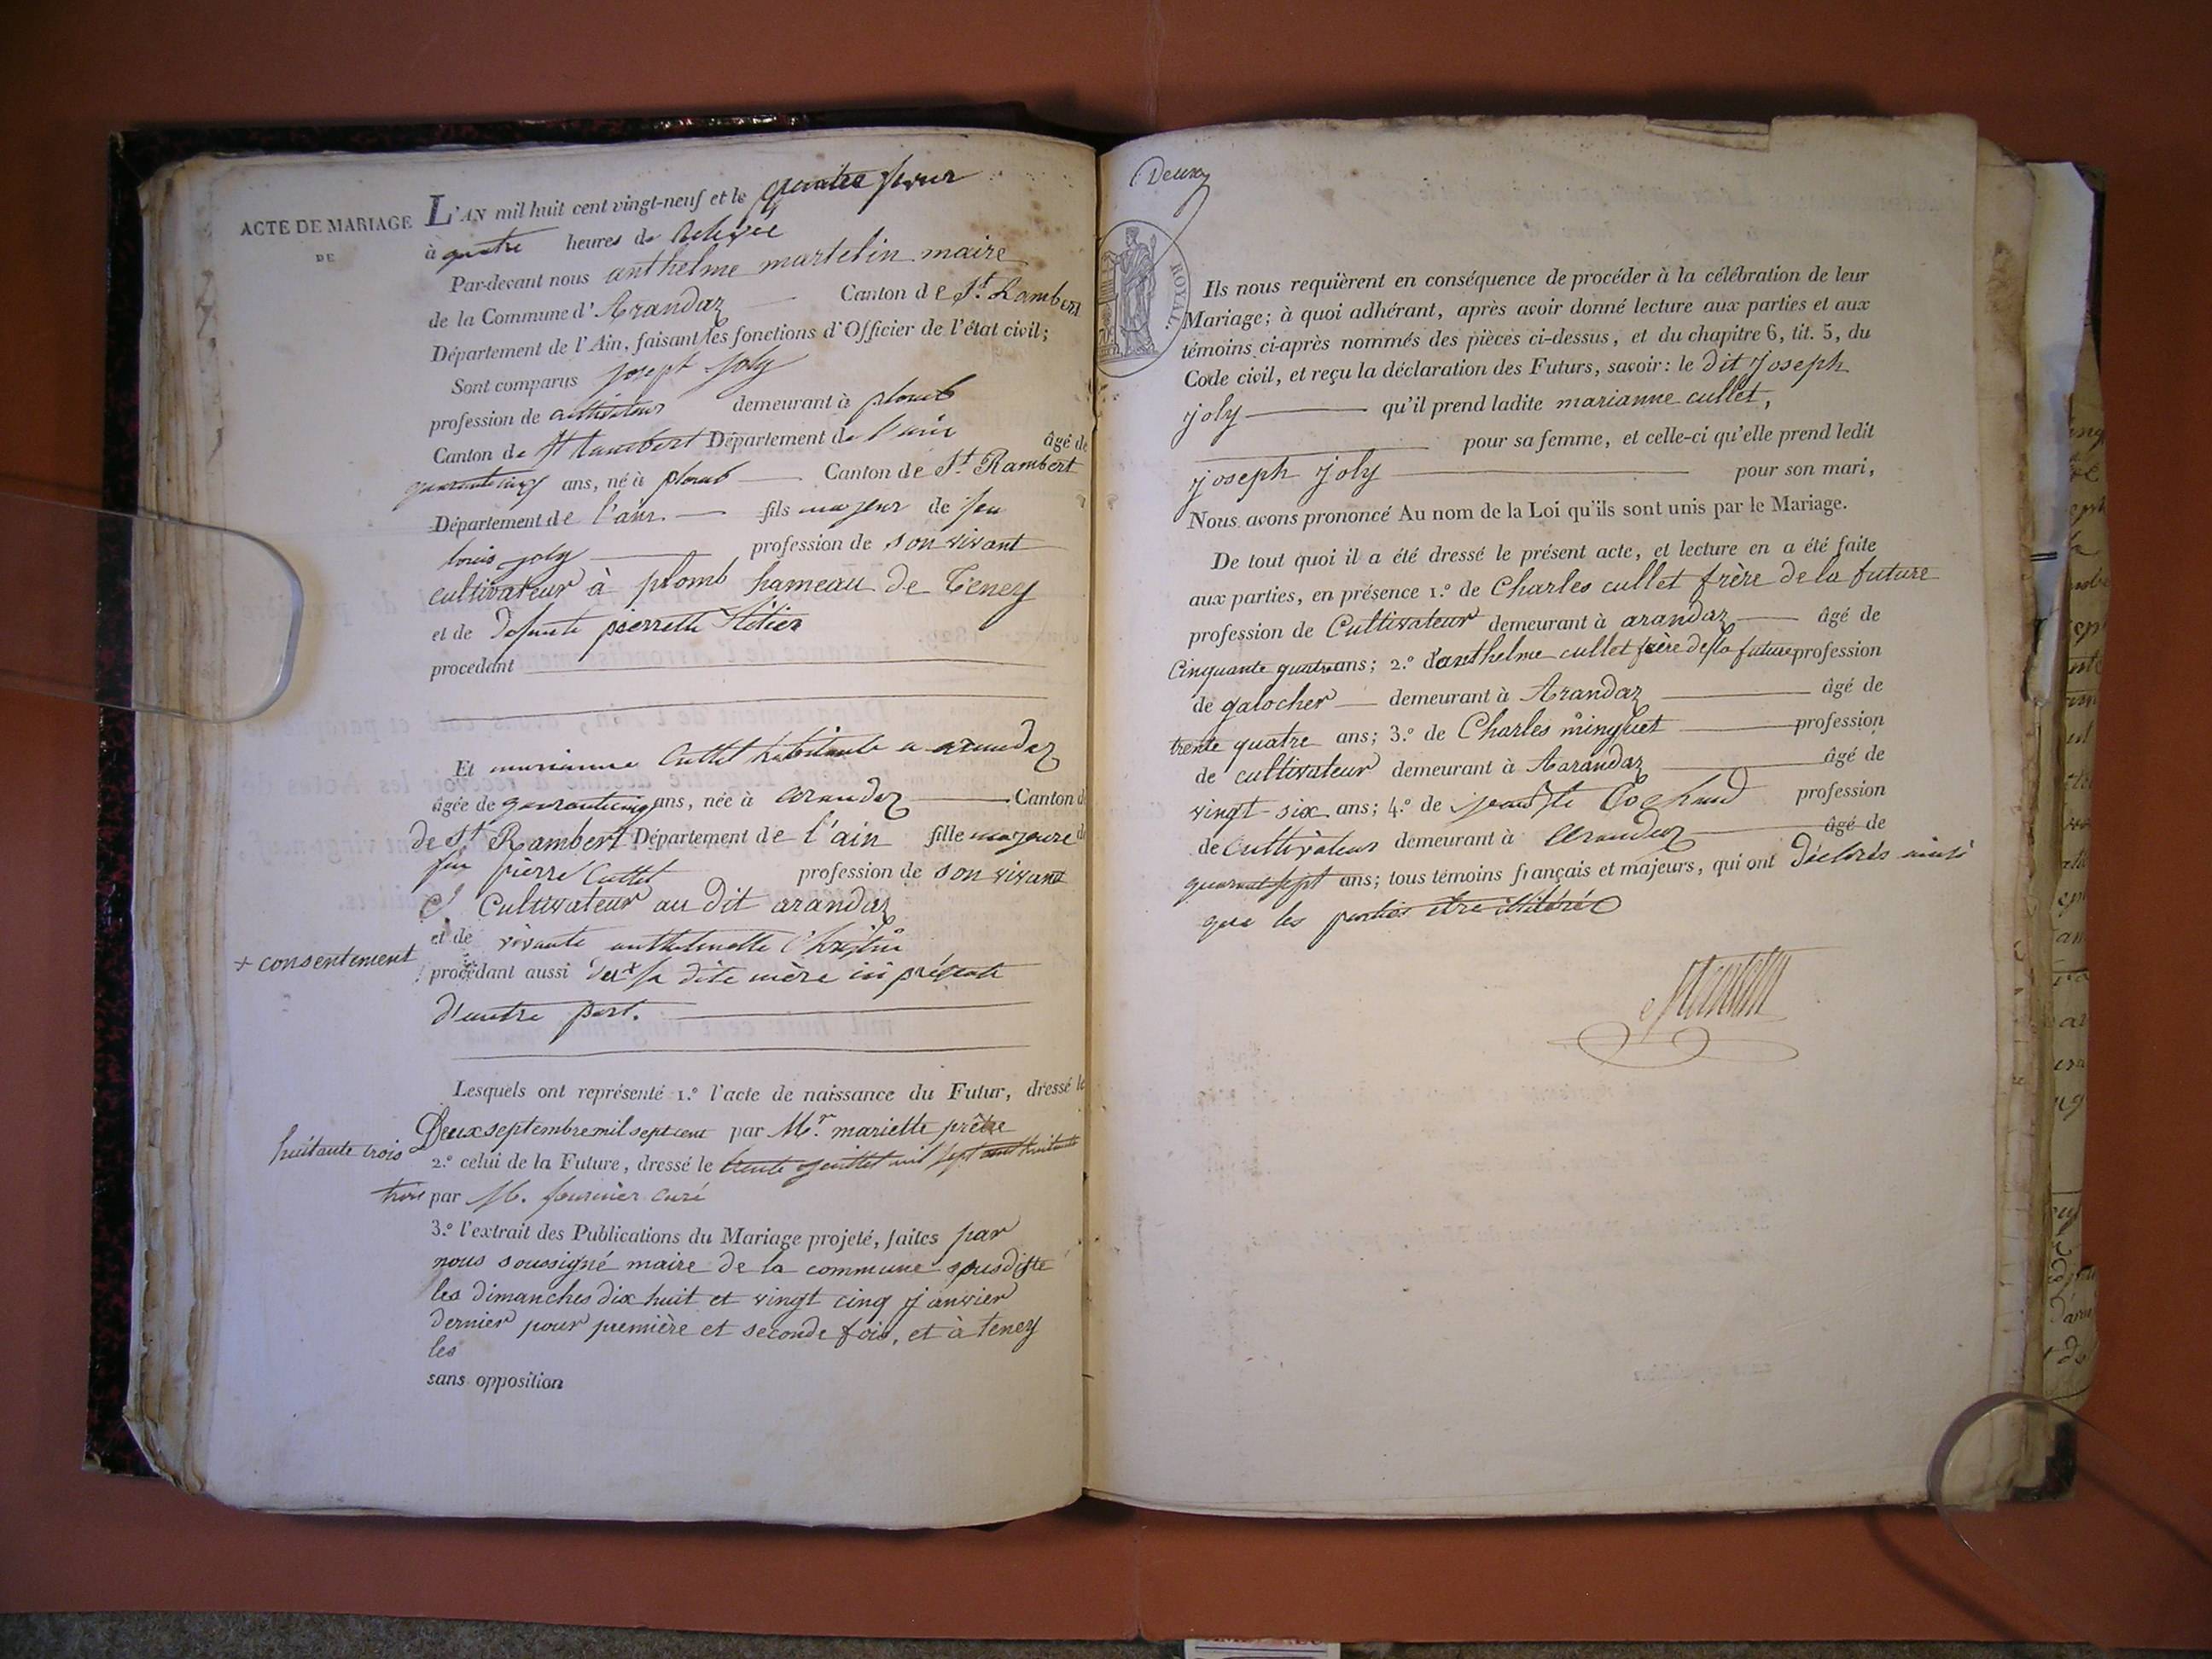 ACTE DE MARIAGE
DE
L'AN mil huit cent vingt-neuf et le quatre fevrier
à quatre heures de relevée
Par-devant nous anthelme martelin maire
de la Commune d' Arandaz Canton de St. Rambert
Département de l'Ain, faisant les fonctions d'Officier de l'état civil;
Sont comparus joseph joly
profession de cultivateur demeurant à plomb
Canton de St Rambert Département de l'ain âgé de
quarante cinq ans, né à plomb Canton de St. Rambert
Département de l'ain fils majeur de feu
louis joly profession de son vivant
cultivateur à plomb hameau de Teney
et de defunte pierrette
procedant
Et marianne Cullet habitante a arandaz
âgée de quarante cinq ans, née à arandaz Canton d
de St Rambert Département de l'ain fille majeure d
feu pierre Cullet profession de son vivant
Cultivateur au dit arandaz
et de vivante anthelmette
+ consentement
procédant aussi du + sa dite mère ici présente
d'autre part.
Lesquels ont représenté 1.º l'acte de naissance du Futur, dressé le
Deux septembre mil sept cent par Mr. mariette prêtre
huitante trois
2.º celui de la Future, dressé le trente juillet mil sept cent huitante
trois par M. fournier curé
3.º l'extrait des Publications du Mariage projeté, faites par
nous soussigné maire de la commune susdite
les dimanches dix huit et vingt cinq janvier
dernier pour première et seconde fois, et à teney
les
sans opposition
Deux
ROYAL.
Ils nous requièrent en conséquence de procéder à la célébration de leur
Mariage; à quoi adhérant, après avoir donné lecture aux parties et aux
témoins ci-après nommés des pièces ci-dessus, et du chapitre 6, tit. 5, du
Code civil, et reçu la déclaration des Futurs, savoir: le dit Joseph
joly qu'il prend ladite marianne cullet,
pour sa femme, et celle-ci qu'elle prend ledit
joseph joly pour son mari,
Nous avons prononcé Au nom de la Loi qu'ils sont unis par le Mariage.
De tout quoi il a été dressé le présent acte, et lecture en a été faite
aux parties, en présence 1.º de Charles cullet frère de la future
profession de Cultivateur demeurant à arandaz âgé de
Cinquante quatre ans; 2.º d'anthelme cullet frère de la future profession
de galocher demeurant à Arandaz âgé de
trente quatre ans; 3.º de Charles minguet profession
de cultivateur demeurant à Aarandaz âgé de
vingt-six ans; 4.º de profession
de Cultivateur demeurant à Arandaz âgé de
quarant sept ans; tous témoins français et majeurs, qui ont déclarés ainsi
que les parties etre illitérés
Martelin